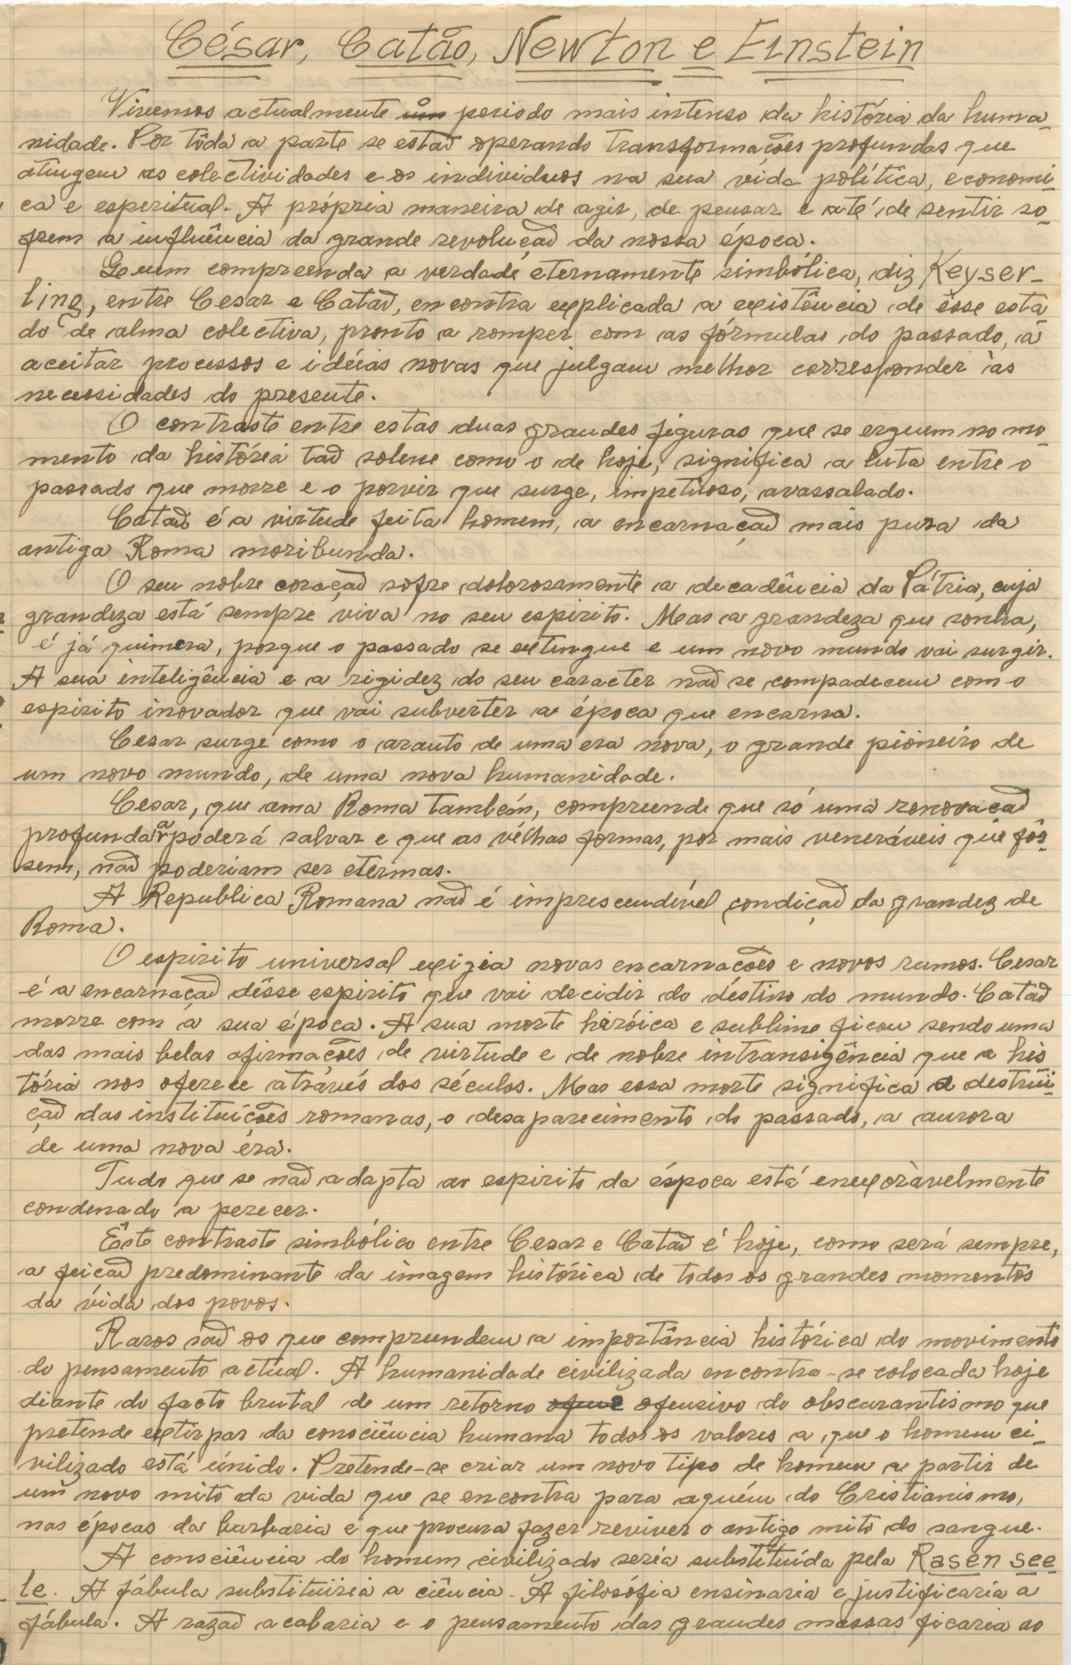 César, Catão, Newton e Einstein
Vivemos actualmente o periodo mais intenso da história da huma-
nidade. Por tôda a parte se estão operando transformações profundas que
atingem as colectividades e os individuos na sua vida política, economi-
ca e espiritual. A própria maneira de agir, de pensar e até de sentir so-
frem a influência da grande revolução da nossa época.
Quem compreenda a verdade eternamente simbólica, diz Keyser-
ling, entre Cesar e Catão, encontra explicada a existência de êsse esta
do de alma colectiva, pronto a romper com as fórmulas do passado, a
aceitar processos e idéias novas que julgam melhor corresponder às
necessidades do presente.
O contraste entre estas duas grandes figuras que se erguem no mo-
mento da história tão solene como o de hoje, significa a luta entre o
passado que morre e o porvir que surge, impetuoso, avassalado.
Catão é a virtude feita homem, a encarnação mais pura da
antiga Roma moribunda.
O seu nobre coração sofre dolorosamente a decadência da Pátria, cuja
grandeza está sempre viva no seu espirito. Mas a grandeza que sonha,
é já quimera, porque o passado se extingue e um novo mundo vai surgir.
A sua inteligência e a rigidez do seu caracter não se compadecem com o
espirito inovador que vai subverter a época que encarna.
Cesar surge como o arauto de uma era nova, o grande pioneiro de
um novo mundo, de uma nova humanidade.
Cesar, que ama Roma também, compreende que só uma renovação
profunda a poderá salvar e que as velhas formas, por mais veneráveis que fôs-
sem, não poderiam ser eternas.
A Republica Romana não é imprescendível condição da grandez de
Roma.
O espirito universal exigia novas encarnações e novos rumos. Cesar
é a encarnação dêsse espirito que vai decidir do destino do mundo. Catão
morre com a sua época. A sua morte heróica e sublime ficou sendo uma
das mais belas afirmações de virtude e de nobre intransigência que a his
tória nos oferece através dos séculos. Mas essa morte significa a destrui-
ção das instituições romanas, o desaparecimento do passado, a aurora
de uma nova éra.
Tudo que se não adapta ao espirito da época está inexoràvelmente
condenado a perecer.
Êste contraste simbólico entre Cesar e Catão é hoje, como será sempre,
a feição predominante da imagem histórica de todos os grandes momentos
da vida dos povos.
Raros são os que compreendem a importância histórica do movimento
do pensamento actual. A humanidade civilizada encontra-se colocada hoje
diante do facto brutal de um retorno ofensivo do obscurantismo que
pretende extirpar da consciência humana todos os valores a que o homem ci-
vilizado está únido. Pretende-se criar um novo tipo de homem a partir de
um novo mito da vida que se encontra para aquém do Cristianismo,
nas épocas da barbaria e que procura fazer reviver o antigo mito do sangue.
A consciência do homem civilizado seria substituída pela Rasen see
le. A fábula substituiria a ciência. A filosófia ensinaria e justificaria a
fábula. A razão acabaria e o pensamento das grandes massas ficaria ao